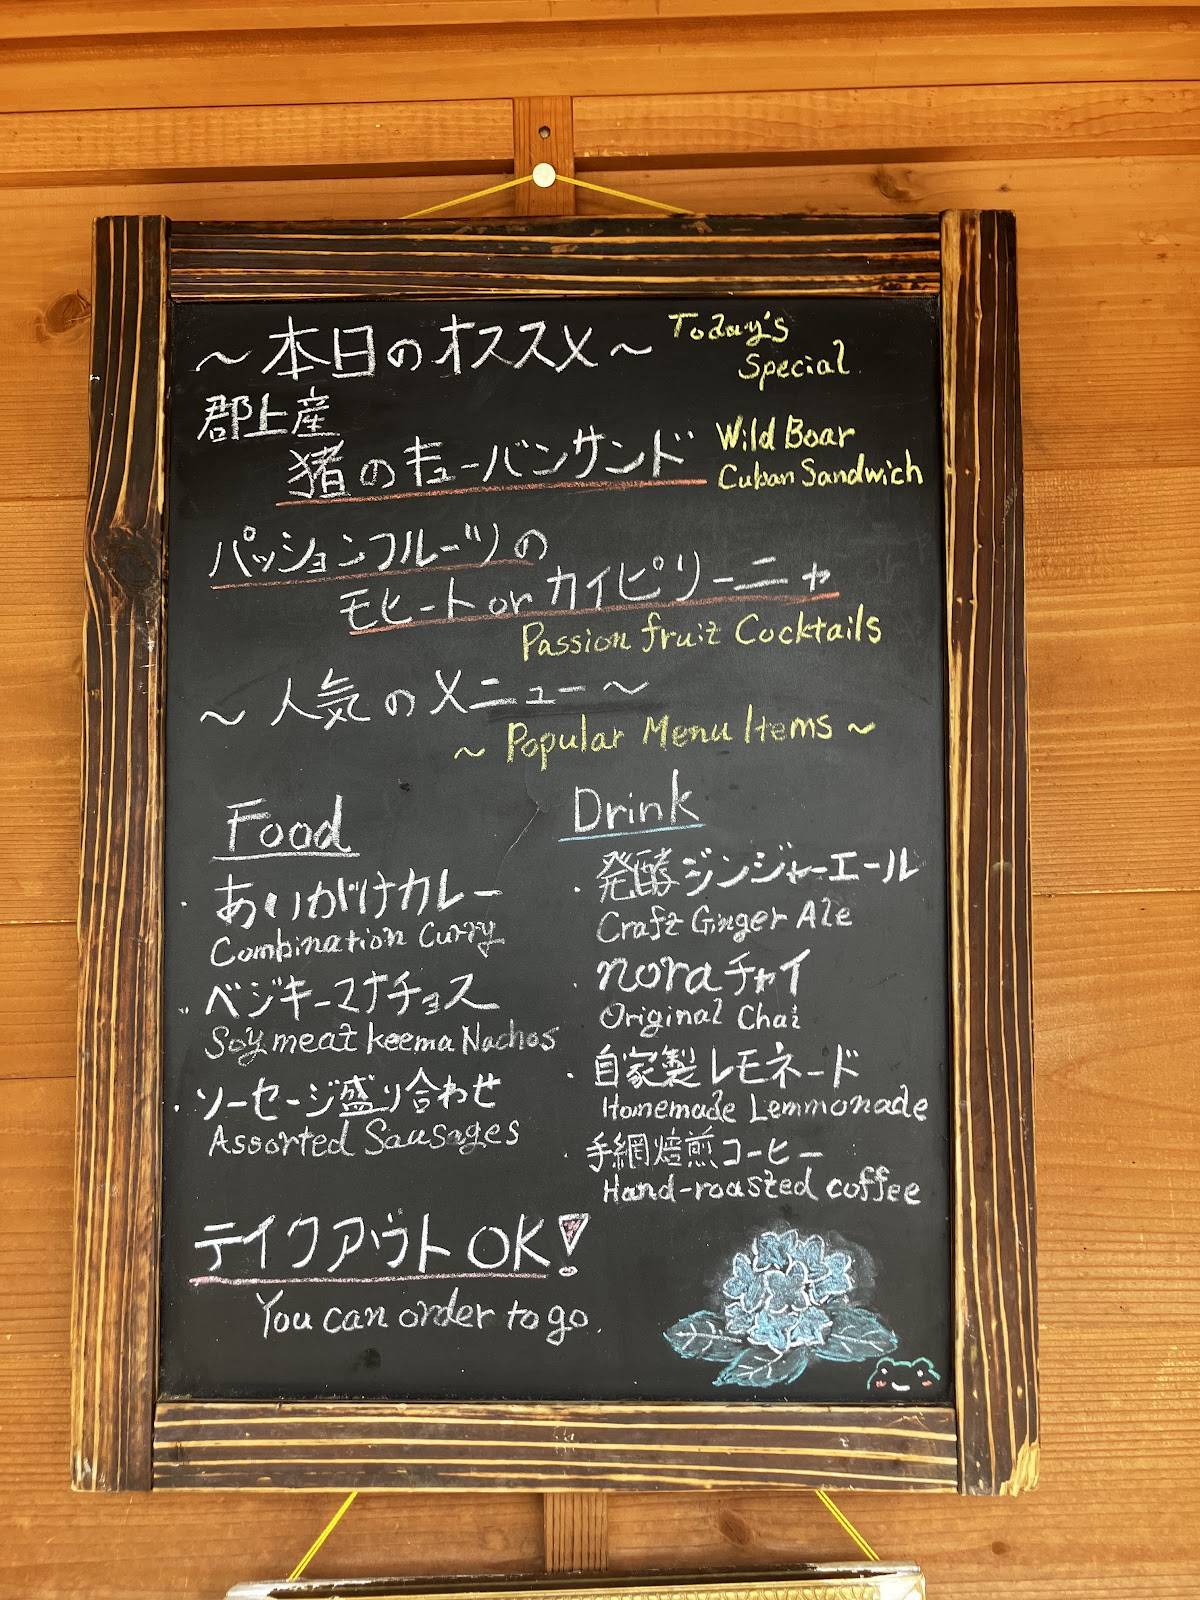 ～本日のオススメ～ Today's
Special
郡上産
猪のキューバンサンド Wild Boar
Cuban Sandwich
パッションフルーツの
モヒートorカイピリーニャ
Passion fruit Cocktails
～人気のメニュー～
～Popular Menu Items～
Food
・あいがけカレー
Combination Curry
・ベジキーマナチョス
Soy meat keema Nachos
・ソーセージ盛り合わせ
Assorted Sausages
Drink
・発酵ジンジャーエール
Craft Ginger Ale
・noraチャイ
Original Chai
・自家製レモネード
Homemade Lemmonade
・手網焙煎コーヒー
Hand-roasted coffee
テイクアウトOK!
You can order to go.